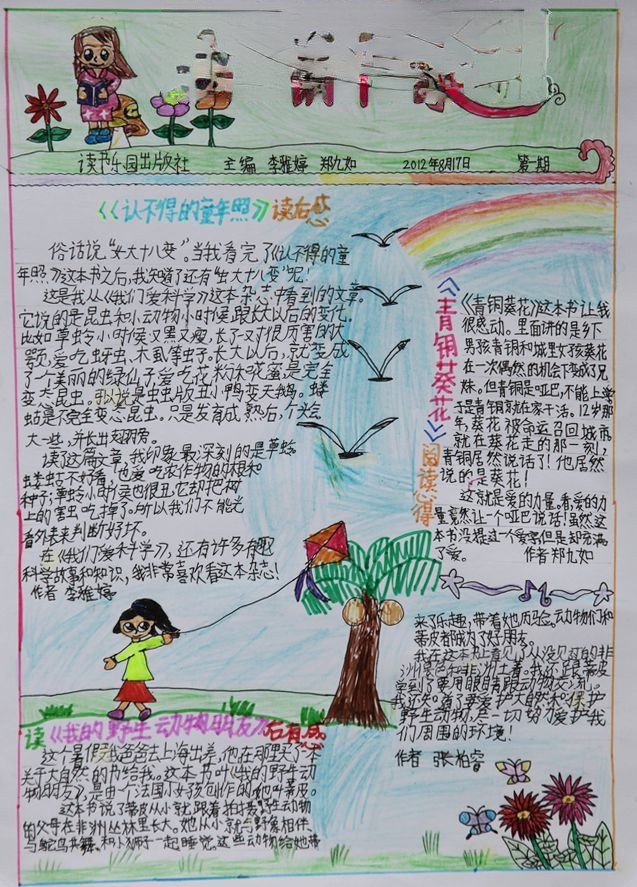 读书乐园出版社 主编 李雅婷 郑九如 2012年8月17日 第一期
《认不得的童年照》读后感
俗话说“女大十八变”。当我看完了《认不得的童
年照》这本书之后,我知道了还有“虫大十八变”呢!
这是我从《我们爱科学》这本杂志中看到的文章。
它说的是昆虫和小动物小时候跟长大以后的变化。
比如草蛉小时候又黑又瘦,长了一对很厉害的大
颚,爱吃蚜虫、木虱等虫子。长大以后,就变成
了一个美丽的绿仙子,爱吃花粉沫呢,蛋是完全
变态昆虫。可以说是虫虫版丑小鸭变天鹅。蝼
蛄是不完全变态昆虫。只是发育成熟后,个头会
大一些,并长出翅膀。
读了这篇文章,我印象最深刻的是草蛉
蝼蛄不好看,也爱吃农作物的根和
种子;草蛉小时候也很丑,它却把树
上的害虫吃掉了。所以我们不能光
看外表来判断好坏。
在《我们爱科学》,还有许多有趣
科学故事和知识,我非常喜欢看这本杂志!
作者 李雅婷
《青铜葵花》阅读心得
《青铜葵花》这本书让我
很感动。里面讲的是乡下
男孩青铜和城里女孩葵花
在一次偶然的机会下变成了兄
妹。但青铜是哑巴,不能上学
于是青铜就在家干活。12岁那
年,葵花被命运召回城市,
就在葵花走的那一刻,
青铜居然说话了!他居然
说的是葵花!
这就是爱的力量。看,爱的力
量竟然让一个哑巴说话!虽然这
本书没提一个爱字但是却充满
了爱。 作者 郑九如
读《我的野生动物朋友》后有感
这个暑假我爸爸去上海出差,他在那里买了一本
关于大自然的书给我。这本书叫《我的野生动
物朋友》,是由一个法国小女孩创作的,她叫蒂皮。
这本书说了蒂皮从小就跟着拍摄野生动物
的父母在非洲丛林里长大。她从小就与野象相伴,
与鸵鸟共舞、和小狮子一起睡觉。这些动物给她带
来了乐趣,带着她历险。动物们和
蒂皮都成为了好朋友。
我在这本书上看见了从没见过的非
学到了要用眼睛跟动物交流。
我还知道了要爱护大自然和保护
野生动物,一切努力爱护我
们周围的环境!
作者 张柏睿